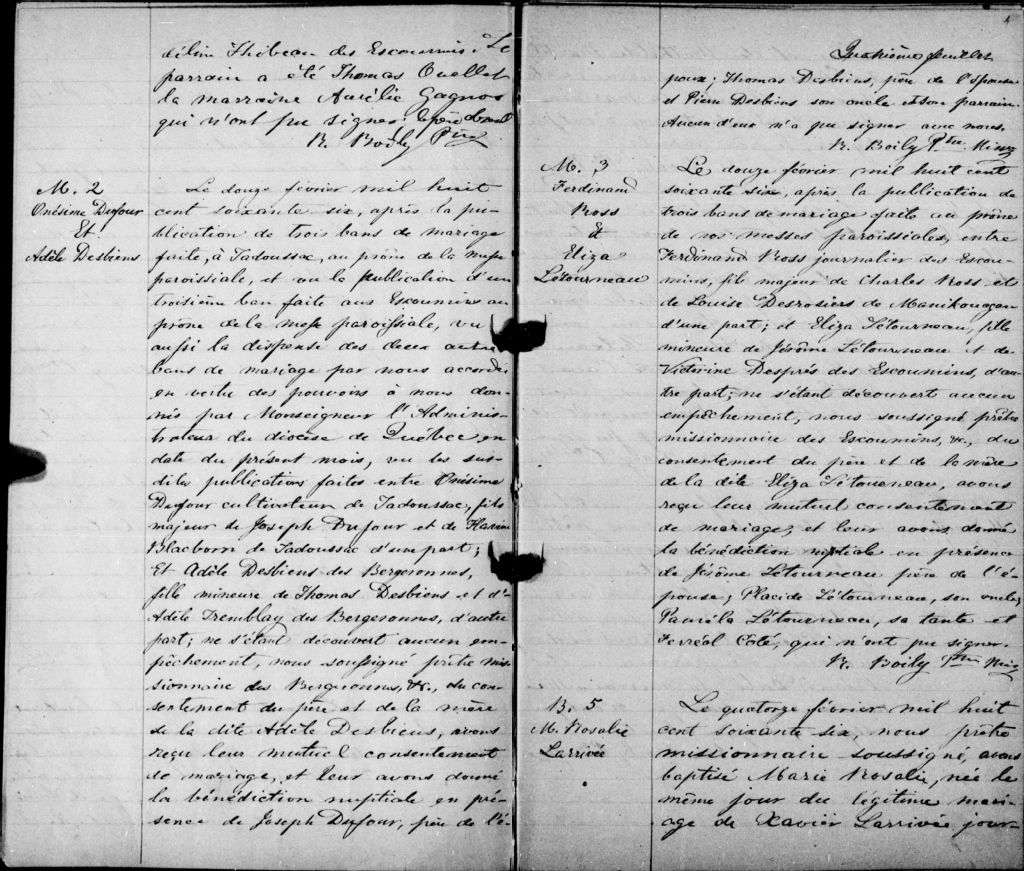 délim Thibeau des Escoumins. Le
parrain a été Thomas Ouellet
la marraine Aurélie Gagnon
qui n'ont pu signer.
R. Boily Ptre
M. 2
Onésime Dufour
Et
Adèle Desbiens
Le douze février mil huit
cent soixante six, après la pu-
blication de trois bans de mariage
faite, à Tadoussac, au prône de la messe
paroissiale, et vu la publication d'un
troisième ban faite aux Escoumins au
prône de la messe paroissiale, vu
aussi la dispense des deux autres
bans de mariage par nous accordée
en vertu des pouvoirs à nous don-
nés par Monseigneur l'Adminis-
trateur du diocèse de Québec, en
date du présent mois, vu les sus-
dites publications faites entre Onésime
Dufour cultivateur de Tadoussac, fils
majeur de Joseph Dufour et de
Blacborn de Tadoussac d'une part;
Et Adèle Desbiens des Bergeronnes,
fille mineure de Thomas Desbiens et d'
Adèle Tremblay des Bergeronnes, d'autre
part; ne s'étant découvert aucun em-
pêchement, nous soussigné prêtre mis-
sionnaire des Bergeronnes, &c., du con-
sentement du père et de la mère
de la dite Adèle Desbiens, avons
reçu leur mutuel consentement
de mariage, et leur avons donné
la bénédiction nuptiale en pré-
sence de Joseph Dufour, père de l'é-
4
Quatrième feuillet
poux; Thomas Desbiens, père de l'épouse
et Pierre Desbiens son oncle et son parrain.
Aucun d'eux n'a pu signer avec nous.
R. Boily Ptre Miss
M. 3
Ferdinand
Ross
&
Eliza
Létourneau
Le douze février mil huit cent
soixante six, après la publication de
trois bans de mariage faite au prône
de nos messes paroissiales, entre
Ferdinand Ross journalier des Escou-
mins, fils majeur de Charles Ross et
de Louise Desrosiers de Manikougan
d'une part; et Eliza Létourneau, fille
mineure de Jérôme Létourneau et de
Victorine Després des Escoumins, d'au-
tre part; ne s'étant découvert aucun
empêchement, nous soussigné prêtre
missionnaire des Escoumins, &c., du
consentement du père et de la mère
de la dite Eliza Létourneau, avons
reçu leur mutuel consentement
de mariage, et leur avons donné
la bénédiction nuptiale en présence
de Jérôme Létourneau père de l'é-
pouse, Placide Létourneau, son oncle,
Létourneau, sa tante et
Ferréol Coté, qui n'ont pu signer.
R. Boily Ptre Miss
B. 5
M. Rosalie
Larrivée
Le quatorze février mil huit
cent soixante six, nous prêtre
missionnaire soussigné, avons
baptisé Marie Rosalie, née le
même jour du légitime mari-
age de Xavier Larrivée jour-